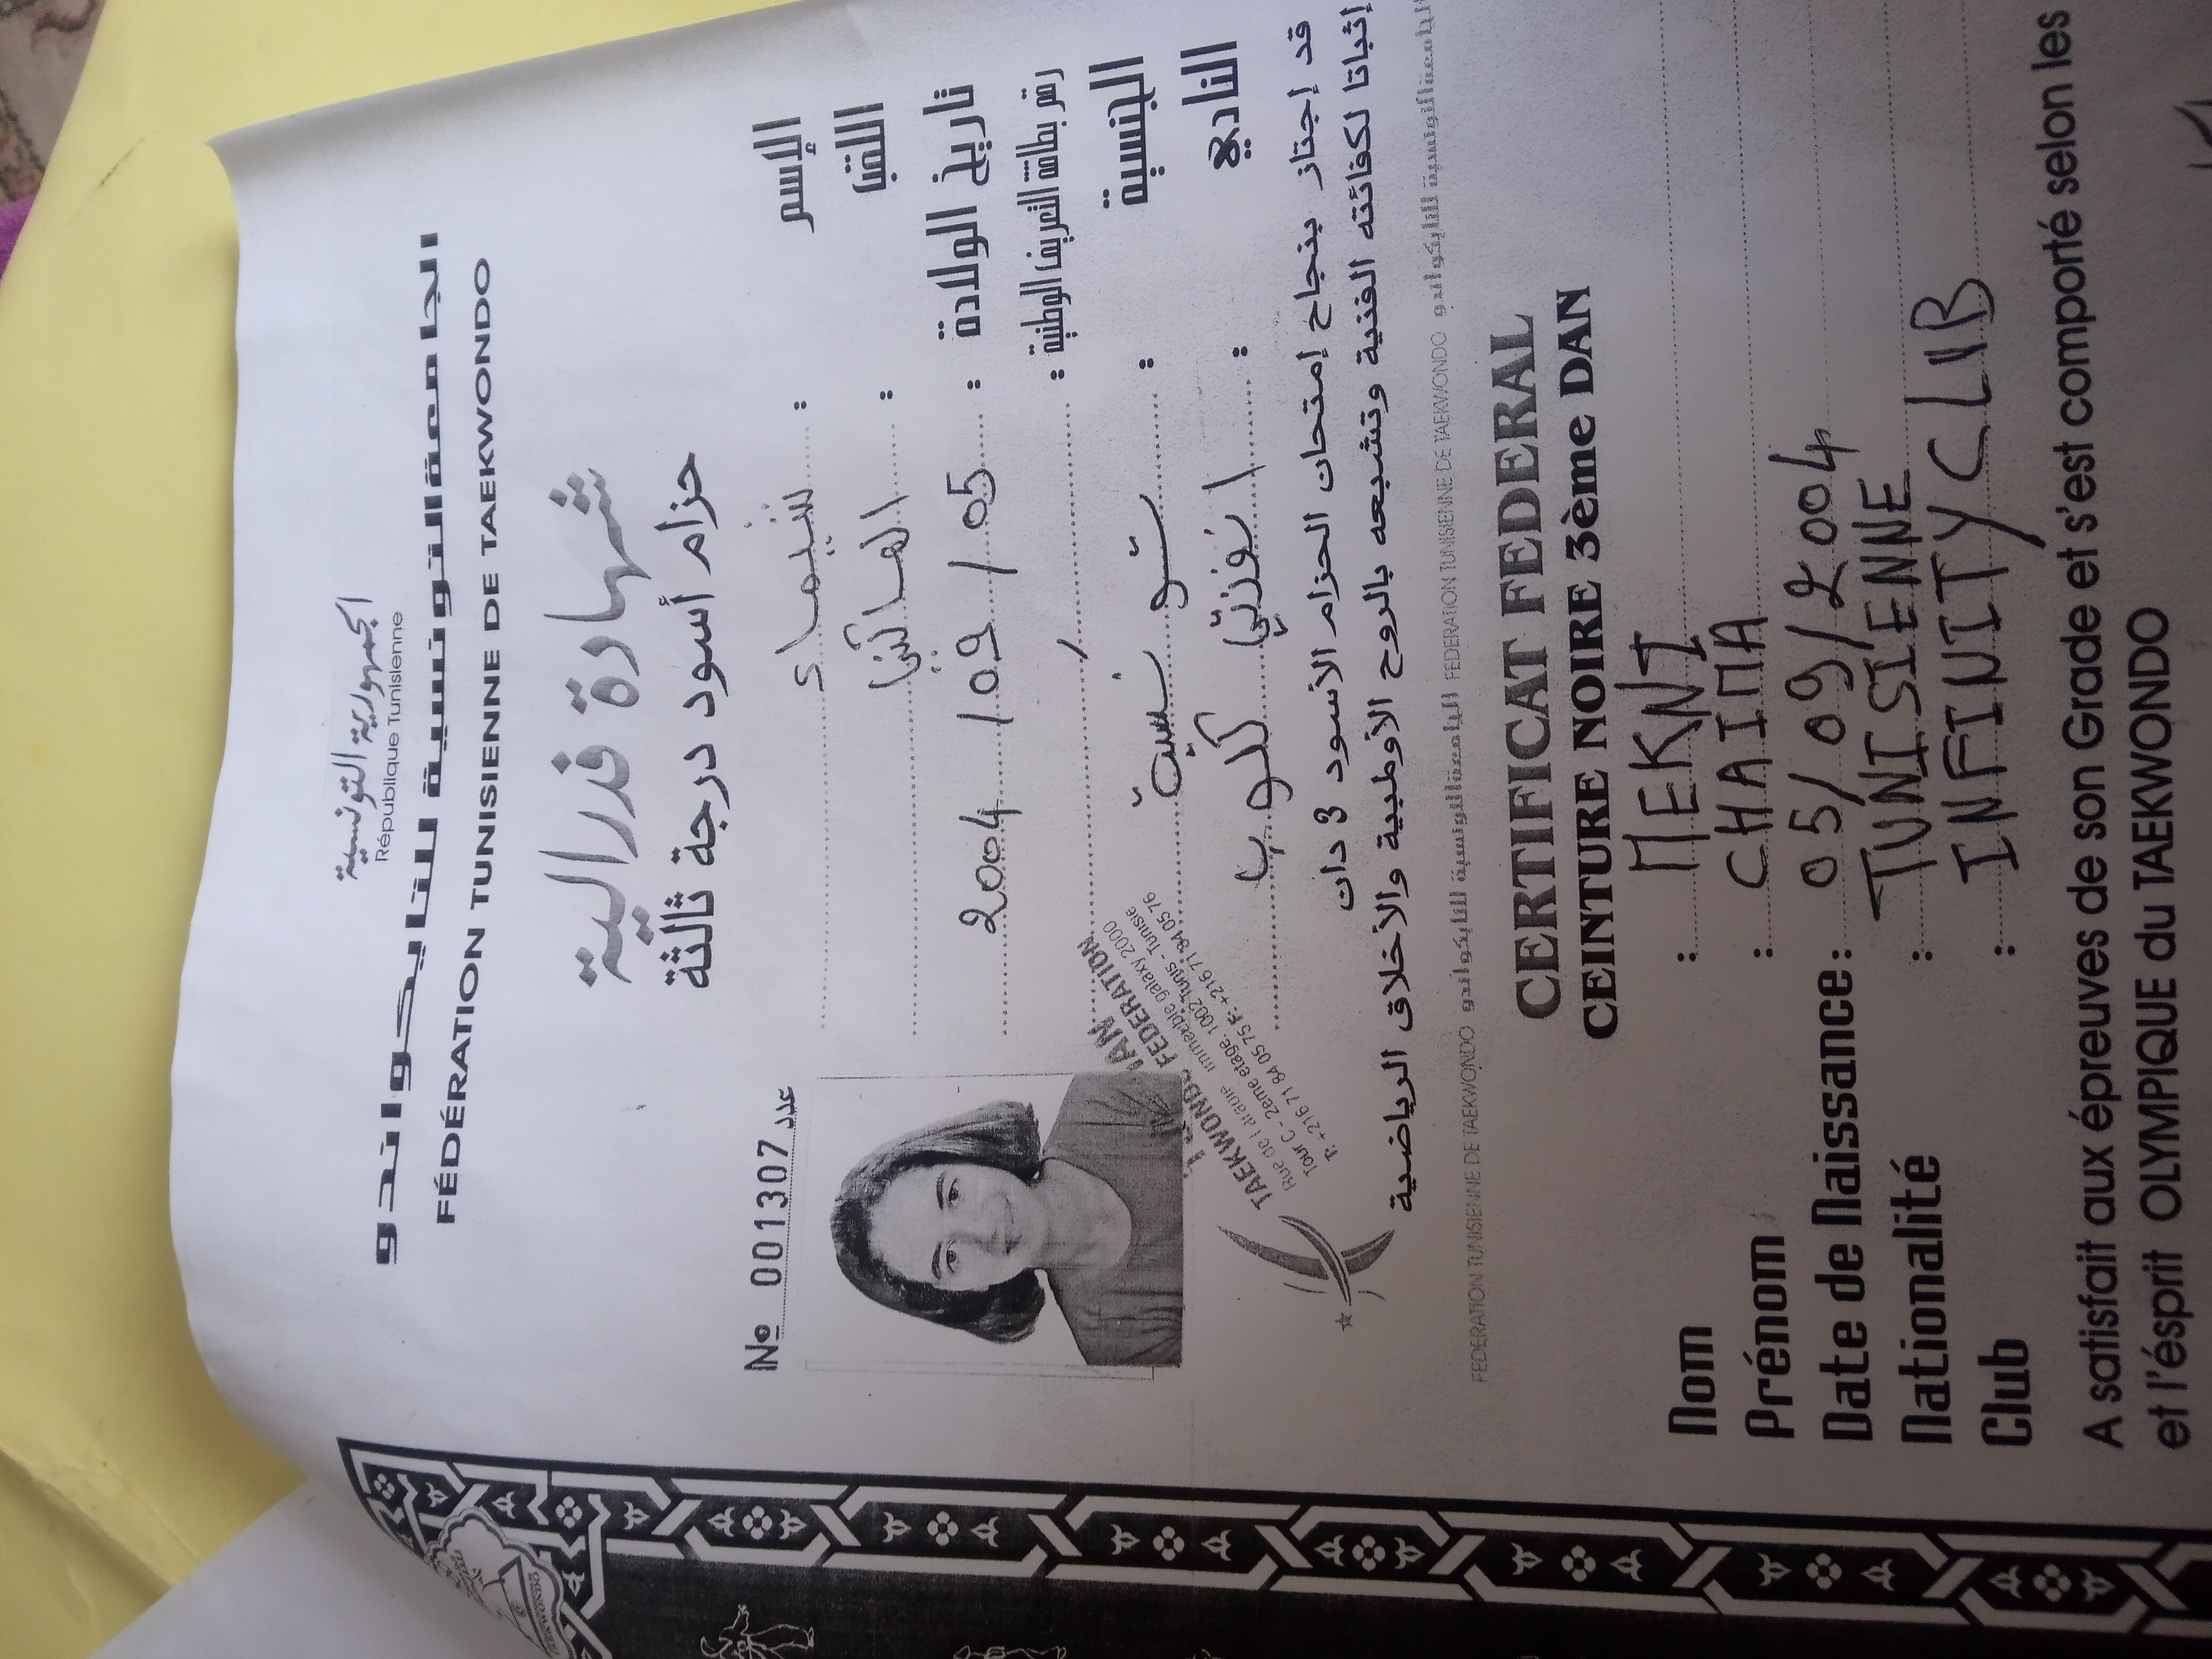 الجمهورية التونسية
République Tunisienne
الجامعة التونسية للتايكواندو
FÉDÉRATION TUNISIENNE DE TAEKWONDO
شهادة فدرالية
حزام أسود درجة ثالثة
No 001307 عدد
الإسم : شيماء
اللقب :
تاريخ الولادة : 05 / 09 / 2004
رقم بطاقة التعريف الوطنية : /
الجنسية : تونسية
النادي : انفنتي كلوب
قد إجتاز بنجاح إمتحان الحزام الأسود 3 دان
إثباتا لكفائته الفنية وتشبعه بالروح الأولمبية والأخلاق الرياضية
TAEKWONDO FEDERATION
immeuble galaxy 2000
Tour C - 2eme etage, 1002 Tunis - Tunisie
T: +216 71 84 05 75 F: +216 71 84 05 76
FEDERATION TUNISIENNE DE TAEKWONDO الجامعة التونسية للتايكواندو FEDERATION TUNISIENNE DE TAEKWONDO الجامعة التونسية للتايكواندو
CERTIFICAT FEDERAL
CEINTURE NOIRE 3ème DAN
Nom : MEKNI
Prénom : CHAIMA
Date de Naissance : 05/09/2004
Nationalité : TUNISIENNE
Club : INFINITY CLUB
A satisfait aux épreuves de son Grade et s'est comporté selon les
et l'ésprit OLYMPIQUE du TAEKWONDO